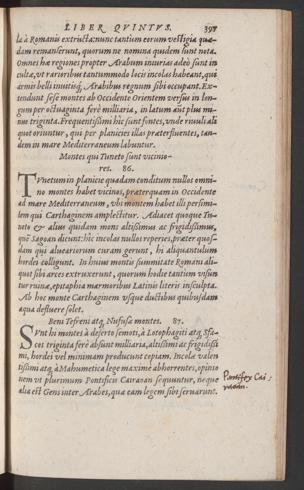 LIBER QVINTVS. 397
la à Romanis extructa: nunc tantùm eorum vestigia quæ-
dam remanserunt, quorum ne nomina quidem sunt nota.
Omnes hæ regiones propter Arabum iniurias adeò sunt in
cultæ, vt rarioribus tantummodo locis incolas habeant, qui
armis belli inuitisq́; Arabibus regnum sibi occupant. Ex-
tendunt sese montes ab Occidente Orientem versus in lon-
gum per octuaginta ferè milliaria, in latum aūt plus mi-
nus triginta. Frequentissimi hîc sunt fontes, vnde riuuli ali
quot oriuntur, qui per planicies illas præterfluentes, tan-
dem in mare Mediterraneum labuntur.
Montes qui Tuneto sunt vicinio-
res. 86.
TVnetum in planicie quadam conditum nullos omni-
no montes habet vicinos, præterquam in Occidente
ad mare Mediterraneum, vbi montem habet illi persimi-
lem qui Carthaginem amplectitur. Adiacet quoque Tu-
neto & alius quidam mons altissimus ac frigidissimus,
quē Sagoan dicunt: hîc incolas nullos reperies, præter quos-
dam qui alueariorum curam gerunt, hi aliquantulum
hordei colligunt. In huius montis summitate Romani ali-
quot sibi arces extruxerunt, quorum hodie tantùm visun
tur ruinæ, epitaphia marmoribus Latinis literis insculpta.
Ab hoc monte Carthaginem vsque ductibus quibusdam
aqua defluere solet.
Beni Tefren atq́; Nufusæ montes. 87.
SVnt hi montes à deserto semoti, à Lotophagitis atq́; Sfa-
cos triginta ferè absunt milliaria, altissimi ac frigidissi
mi, hordei vel minimam producunt copiam. Incolæ valen
tissimi atq́; à Mahumetica lege maximè abhorrentes, opinio
nem vt plurimùm Pontificis Cairaoan sequuntur, neque
alia est Gens inter Arabes, quæ eam legem sibi seruarunt.
Pontifex Cai;